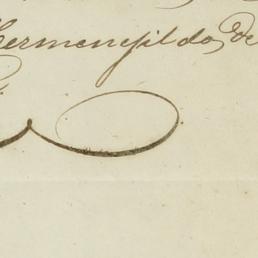 Hermenegildo de